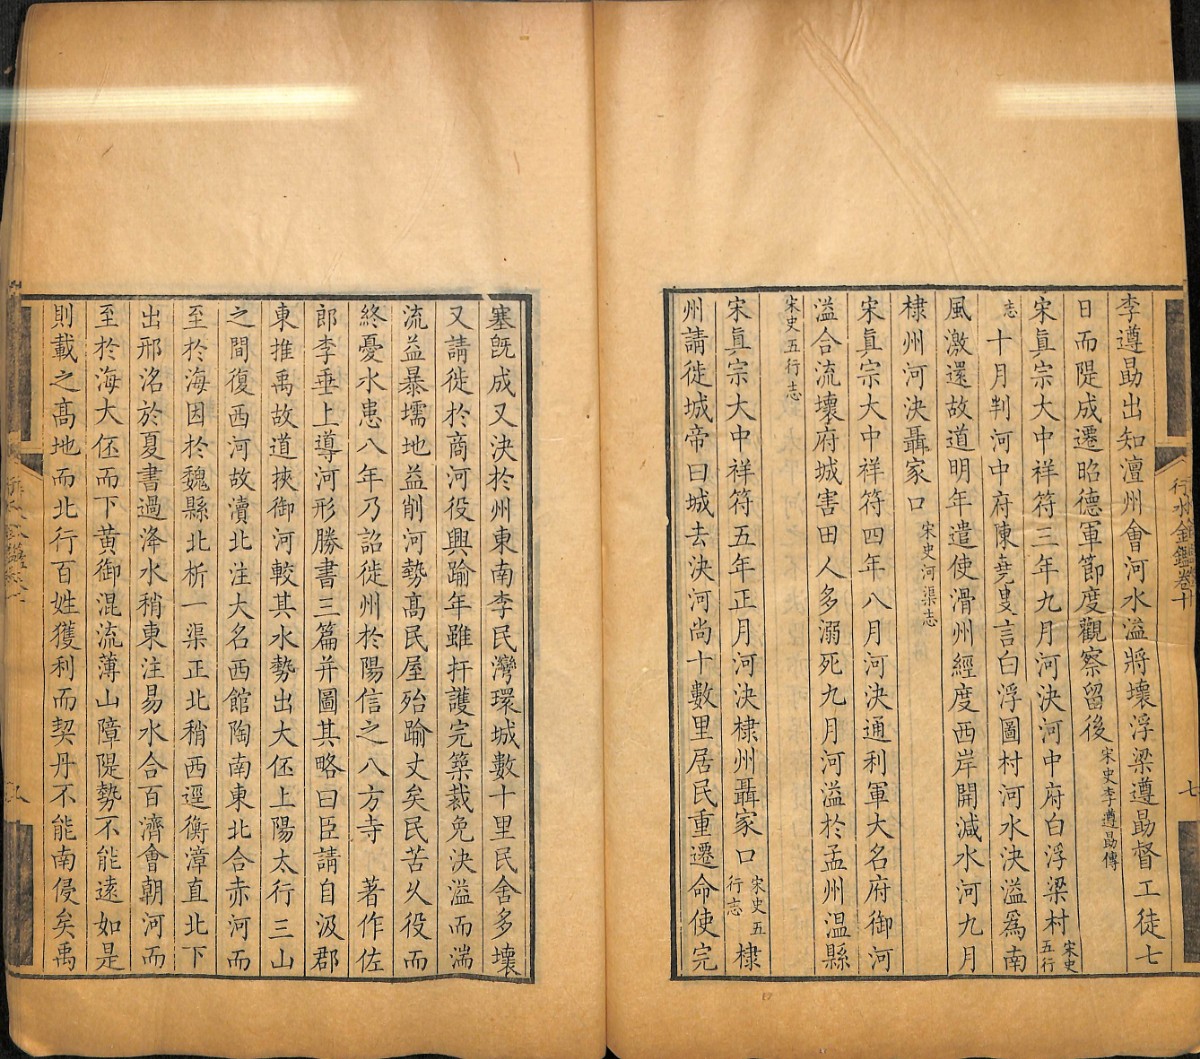 行水金鑑卷十
七
李遵勗出知澶州會河水溢將壞浮梁遵勗督工徒七
日而隄成遷昭德軍節度觀察留後宋史李遵勗傳
宋眞宗大中祥符三年九月河決河中府白浮梁村宋史五行
志十月判河中府陳堯叟言白浮圖村河水決溢爲南
風激還故道明年遣使滑州經度西岸開減水河九月
棣州河決聶家口宋史河渠志
宋眞宗大中祥符四年八月河決通利軍大名府御河
溢合流壞府城害田人多溺死九月河溢於孟州溫縣
宋史五行志
宋眞宗大中祥符五年正月河決棣州聶家口宋史五行志棣
州請徙城帝曰城去決河尚十數里居民重遷命使完
塞旣成又決於州東南李民灣環城數十里民舍多壞
又請徙於商河役興踰年雖扞護完築裁免決溢而湍
流益暴壖地益削河勢高民屋殆踰丈矣民苦久役而
終憂水患八年乃詔徙州於陽信之八方寺 著作佐
郎李垂上導河形勝書三篇幷圖其略曰臣請自汲郡
東推禹故道挾御河較其水勢出大伾上陽太行三山
之間復西河故瀆北注大名西館陶南東北合赤河而
至於海因於魏縣北析一渠正北稍西逕衡漳直北下
出邢洺於夏書過洚水稍東注易水合百濟會朝河而
至於海大伾而下黃御混流薄山障隄勢不能遠如是
則載之高地而北行百姓獲利而契丹不能南侵矣禹